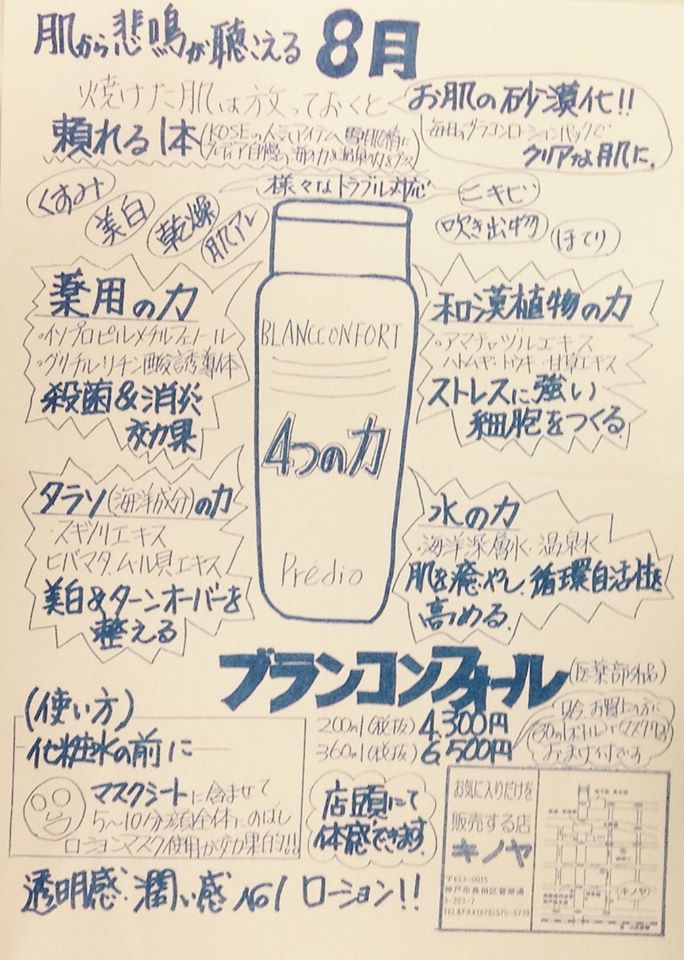 肌から悲鳴が聴こえる 8月
焼けた肌は放っておくと
お肌の砂漠化!!
毎日のブランコンローションパックで
クリアな肌に。
頼れる1本
(KOSEの人気アイテム
プレディア自慢の海の力&温泉の力をプラス
様々なトラブル対応
くすみ
美白
乾燥
肌アレ
ニキビ
吹き出物
ほてり
薬用の力
・イソプロピルメチルフェノール
・グリチルリチン酸誘導体
殺菌&消炎
効果
和漢植物の力
・アマチャヅルエキス
ハトムギ・トウキ・甘草エキス
ストレスに強い
細胞をつくる。
BLANCCONFORT
4つの力
Prédio
タラソ(海洋成分)の力
・スギノリエキス
ヒバマタ、ムール貝エキス
美白&ターンオーバーを
整える
水の力
・海洋深層水・温泉水
肌を癒やし、循環自活性を
高める。
ブランコンフォール
(医薬部外品)
200ml(税抜) 4,300円
360ml(税抜) 6,500円
お買上の方に
30mlボトル+マスク
おまけ付です
(使い方)
化粧水の前に
マスクシートに含ませて
5〜10分顔全体にのばし
ローションマスク使用が効果的!!
店頭にて
体感できます。
お気に入りだけを
販売する店
キノヤ
〒653-0015
神戸市長田区菅原通
3-203-7
TEL&FAX(078)575-5739
(キノヤ)
透明感・潤い感 No1 ローション!!